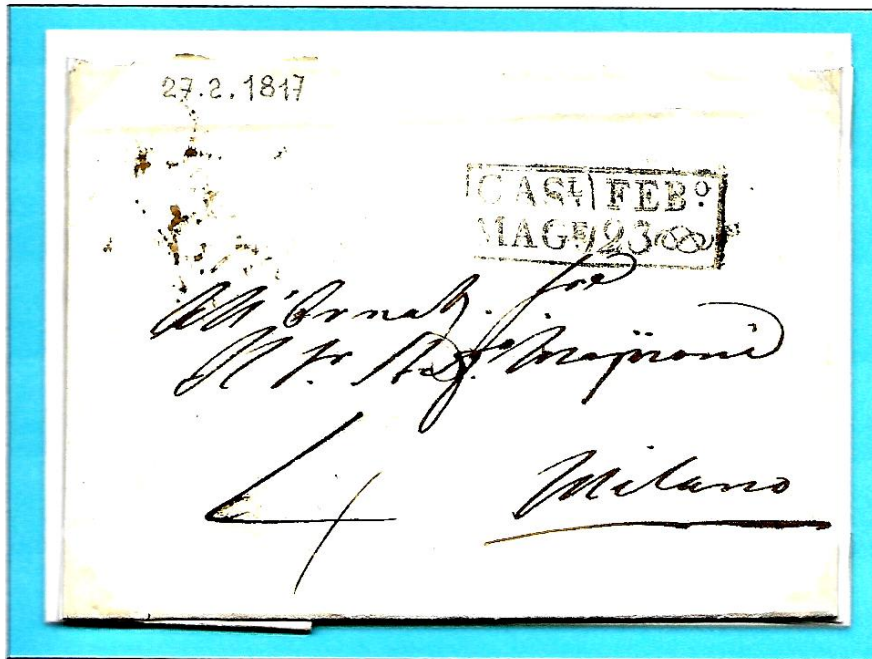 27.2.1817
CASL FEBº
MAGE 23
All'Ornat.
Il Sr
4 Milano